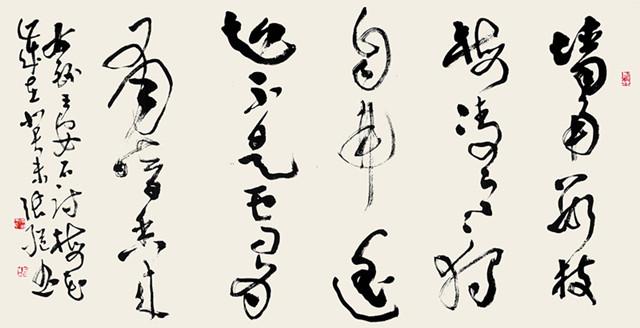 墙角数枝
梅凌寒独
自开遥
知不是雪为
有暗香来
右录王安石诗梅花
癸未张书